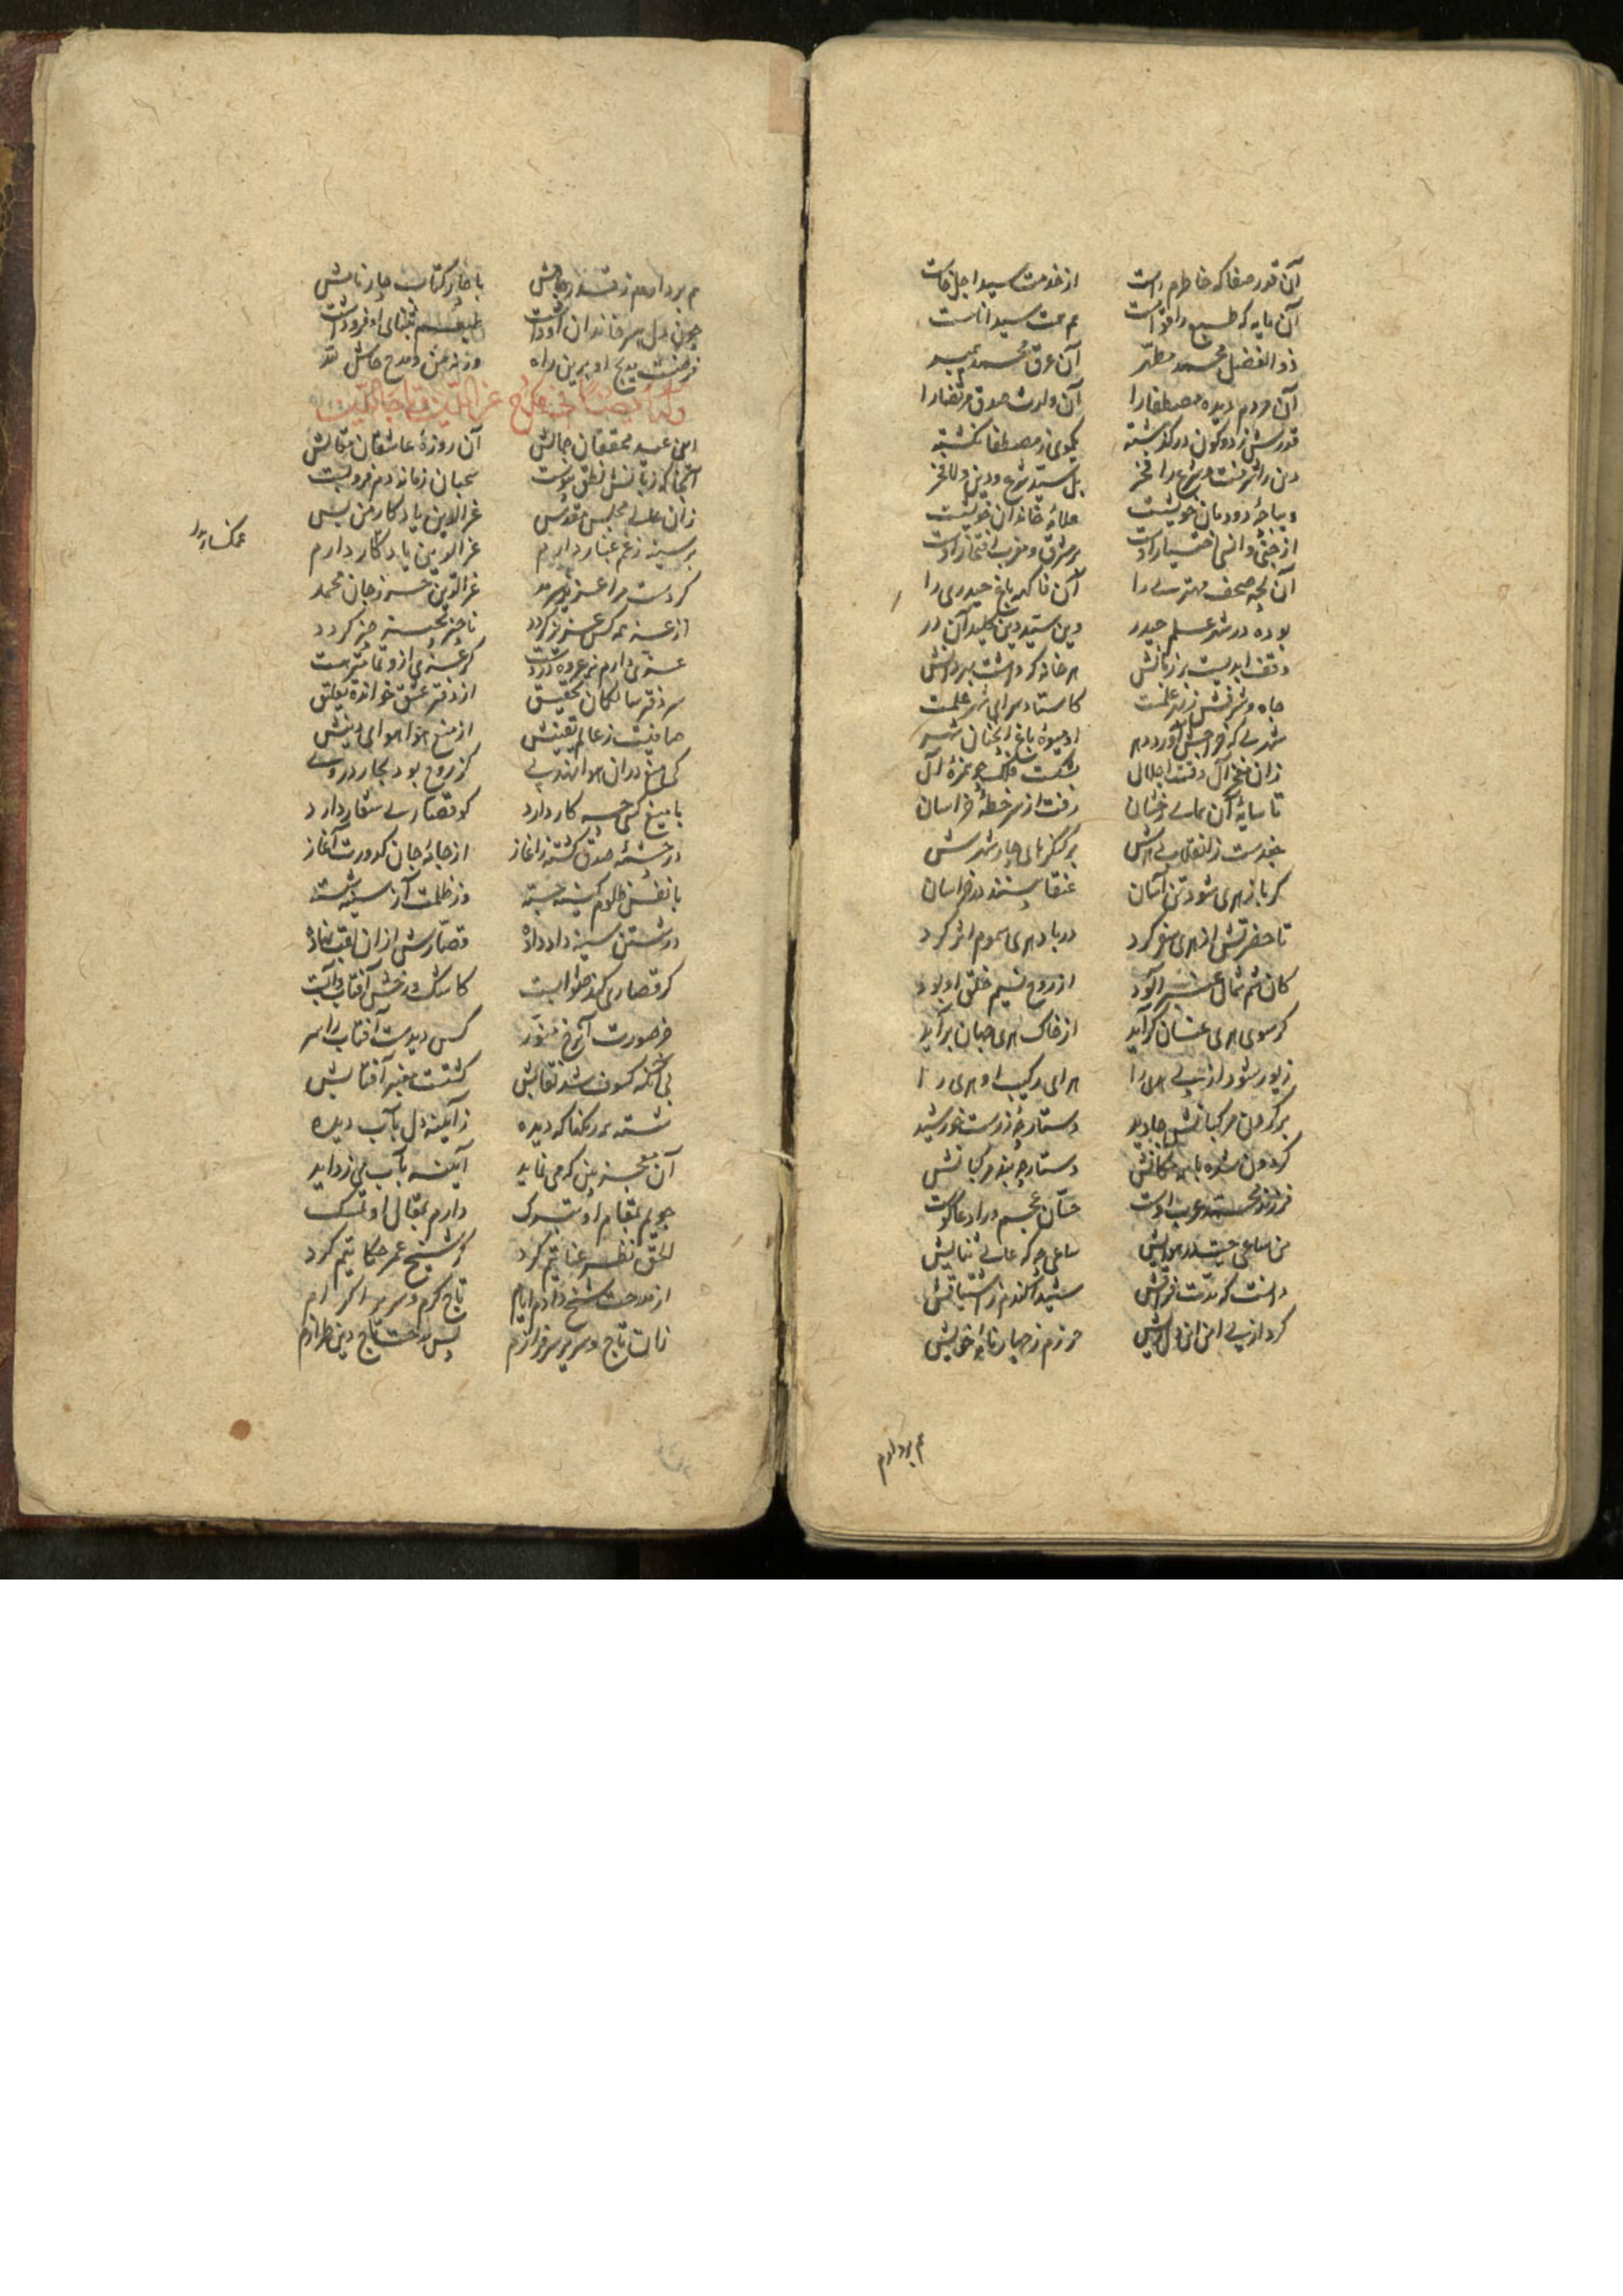 آن قدر صفا که خاطرم راست از خدمت سید اجل خاست
آن مایه که طبع را فزاست هم همت سید اناست
ذو الفضل محمد مطهر آن عرق محمد پیمبر
آن مردم دیده مصطفا را آن وارث صدق مرتضا را
قدرش ز دو کون در گذشته یکموی ز مصطفا نگشته
دین را شرفست و شرع را فخر بل سید شرع و دین و للفخر
دیباجهٔ دودمان خویشست علامهٔ خاندان خویشست
از جنی و انسی اختیار اوست در مشرق و مغرب افتخار اوست
آن لهجه صحف مهتری را آن تا که باغ حیدری را
بوده در شهر علم حیدر وین سید دین کلید آن در
وقف ابدیست بر زبانش هر خانه که داشت بهر دانش
جاه و شرفش ز شهر علمست کاستاد سرای شهر علمست
شهری که درختش آورد بر او میوهٔ باغ آنچنان شهر
زان مفخر آل وقت اجلال
تا سایهٔ آن همای رخشان رفت از سر خطهٔ خراسان
جغدست ز انقلاب بی هرش بر کنگرهای چار شهرش
گر باز هری شود تن آسان عنقا بینند در خراسان
تا حضرتش از هری سفر کرد در باد هری سموم اثر کرد
کان شم شمال عنبر آلود از روح نسیم خلق او بود
گر سوی هری عنان گراید از خاک هری جهان برآید
زیور شود از پی هری را هرای مرکب او هری را
بر گردن مرکبانش جاوید دستارچه زرست خورشید
گردون شده با همه مکانش دستارچه بند مرکبانش
فرزند محمد عرب اوست حسان عجم ورا دعاگوست
من ساعی چیستدر هوایش ساعی چو که عالی ثنایش
دانست که مدت فراقش شیدا کندم ز اشتیاقش
کرد از پی امن این دل ریش حرزم ز چهار نامهٔ خویش
هم بردارم
هم بردارم ز قدر جاهش با چار کتاب چار نامش
چون دل سر خاندان او داشت طبعم بثنای او فرو داشت
فرضست مدیح او برین راه وز من و مدح حاش لله
این عید محققان جمالش آن روزهٔ عاشقان مقالش
آنجا که زبانش نطق پیوست سحبان زمانه دم فرو بست
زان عالی مجلس مقدس عز الدین یادگار من بس
بر سینه ز غم غبار دارم عز الدین یادگار دارم
غمگسار بدر
کردست مرا عزیز و سرمد عز الدین حسن ز جان محمد
از عز همه کس عزیز گردد ناچیز بحسن چیز گردد
عزی دارم نه عروه در دست گر عزی از و تماثرست
سر دفتر سالکان تحقیق از دفتر عشق خوانده تعلیق
صافیست ز عالم یقینش از میغ هوا هوای دینش
کی میغ در آن هوا نهد پی کز روح بود بخار در وی
با میغ کسی چه کار دارد کو قصاری شعار دارد
در چشمهٔ صدق شسته ز آغاز از جامهٔ جان کدورت آغاز
با نفس ظلوم کینه جسته وز ظلمت آز سینه شسته
در شستن سینه داد داده قصارش از آن لقب نهاده
گر قصاری کند صوابست کاشک و رخش آفتاب و آبست
جز صورت آن رخ منور کس دیدست آفتاب را سر
بی آنکه کسوف شد نقابش گشتست مغیر آفتابش
شسته همه رنگها که دیده ز آینه دل بآب دیده
آن معجز بین که می نماید آینه بآب می زداید
جویم بمقام او تبرک دارم بمقال او تمسک
الحق نظر عنایتم کرد کو شیخ عمر حکایتم کرد
از مدحت شیخ دادم ایام تاج کرم و سریر اکرام
زان تاج و سریر سرفرازم پس مدحت تاج دین طرازم